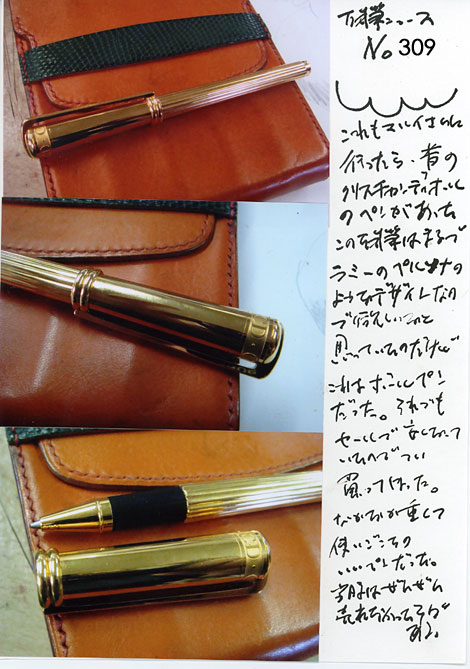 万年筆ニュース
No 309
これもマルイさんに
行ったら、昔の
クリスチャンディオール
のペンがあった
この万年筆はまるで
ラミーのペルソナの
ようなデザインなの
で欲しいなと
思っていたのだけど
これはボールペン
だった。それでも
セールで安くなって
いたのでつい
買ってしまった。
なかなか重くて
使いごこちの
いいペンだった。
当時はぜんぜん
売れなかったそうで
ある。